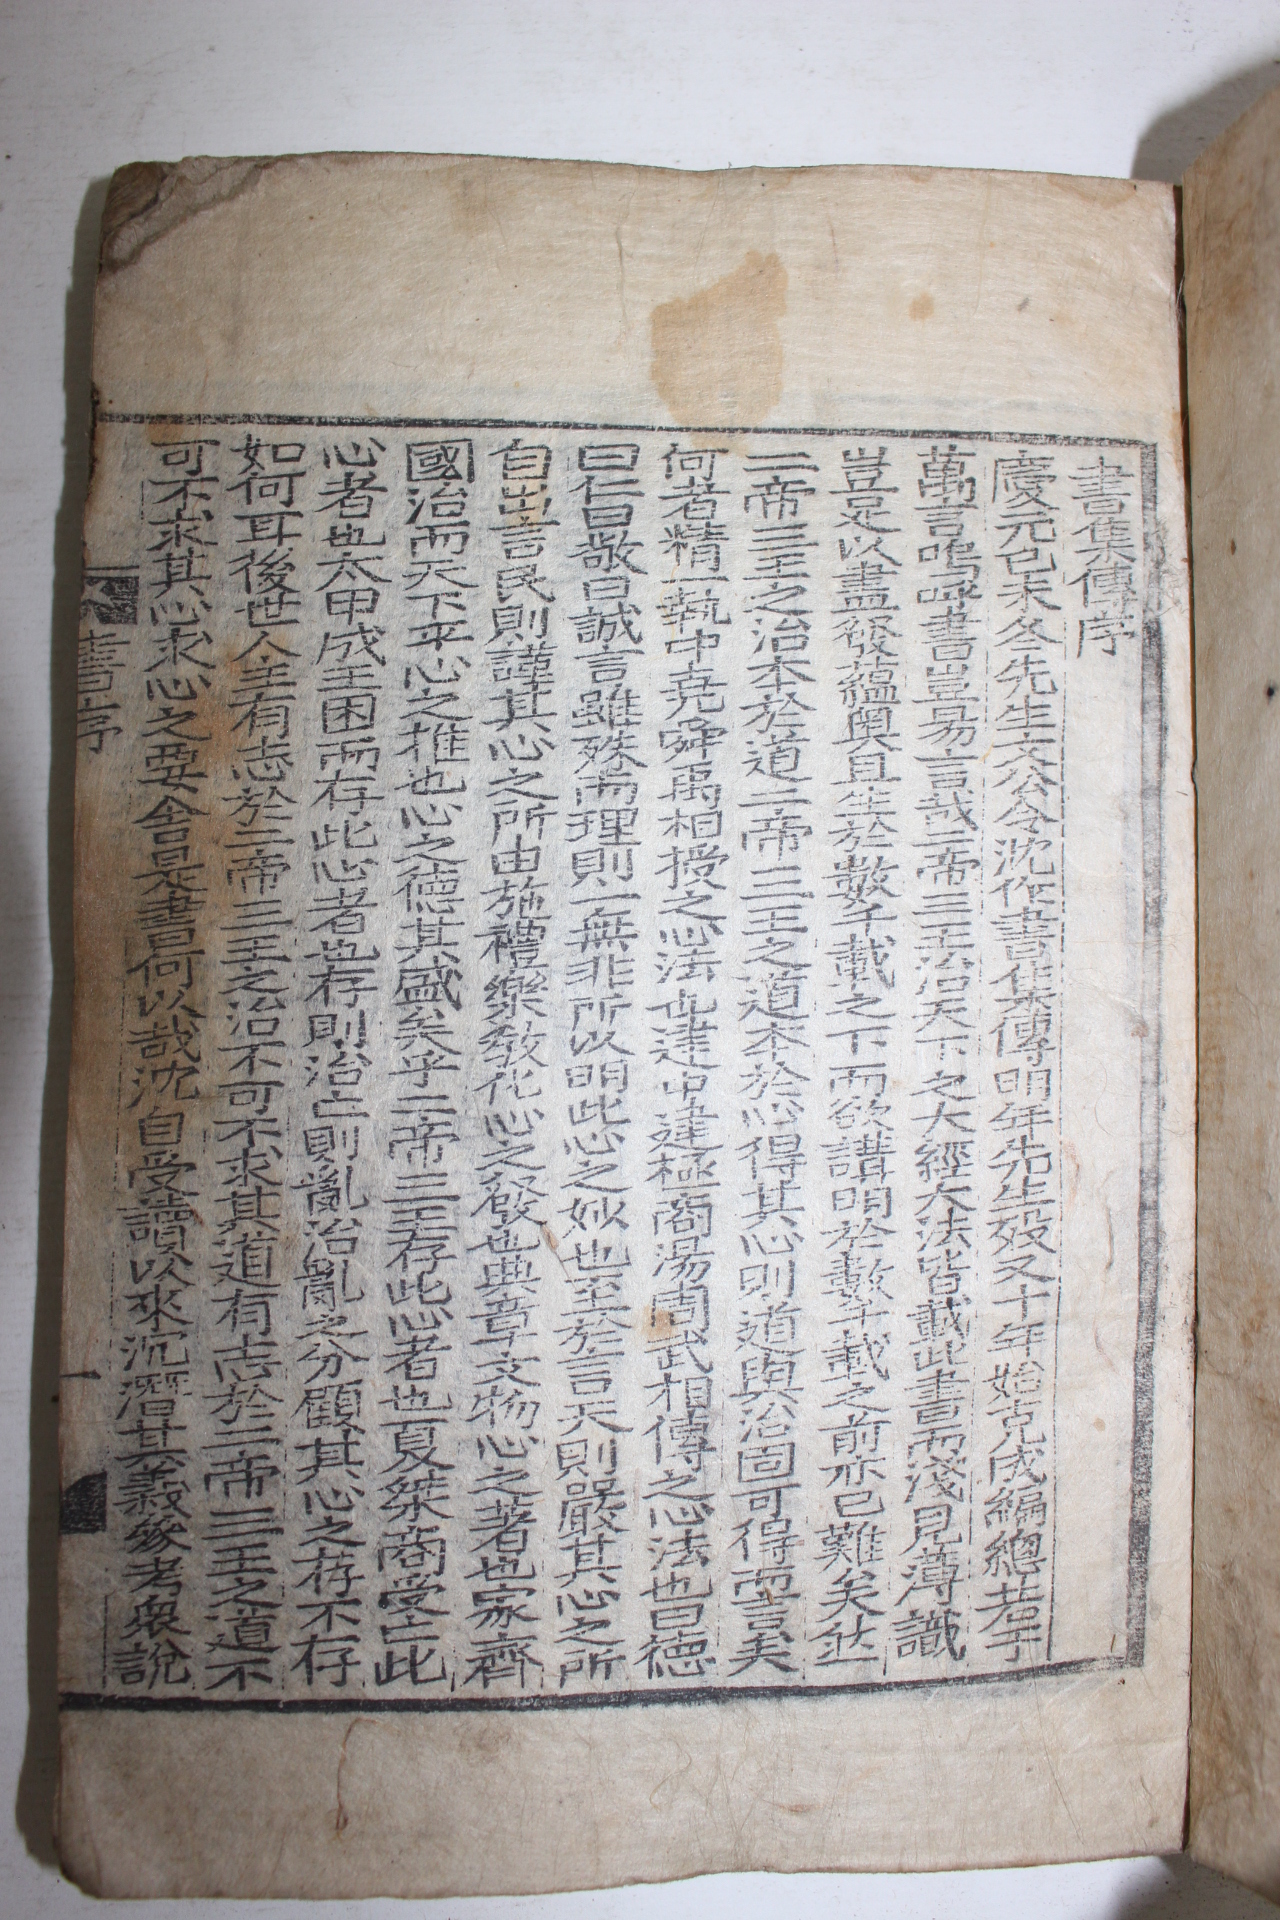 書集傳序
慶元己未冬先生文公令沈作書集傳明年先生歿又十年始克成編總若干
萬言嗚呼書豈易言哉二帝三王治天下之大經大法皆載此書而淺見薄識
豈足以盡發蘊奧且生於數千載之下而欲講明於數千載之前亦已難矣然
二帝三王之治本於道二帝三王之道本於心得其心則道與治固可得而言矣
何者精一執中堯舜禹相授之心法也建中建極商湯周武相傳之心法也曰德
曰仁曰敬曰誠言雖殊而理則一無非所以明此心之妙也至於言天則嚴其心之所
自出言民則謹其心之所由施禮樂敎化心之發也典章文物心之著也家齊
國治而天下平心之推也心之德其盛矣乎二帝三王存此心者也夏桀商受亡此
心者也太甲成王困而存此心者也存則治亡則亂治亂之分顧其心之存不存
如何耳後世人主有志於二帝三王之治不可不求其道有志於二帝三王之道不
可不求其心求心之要舍是書何以哉沈自受讀以來沉潛其義參考衆說
書序
一